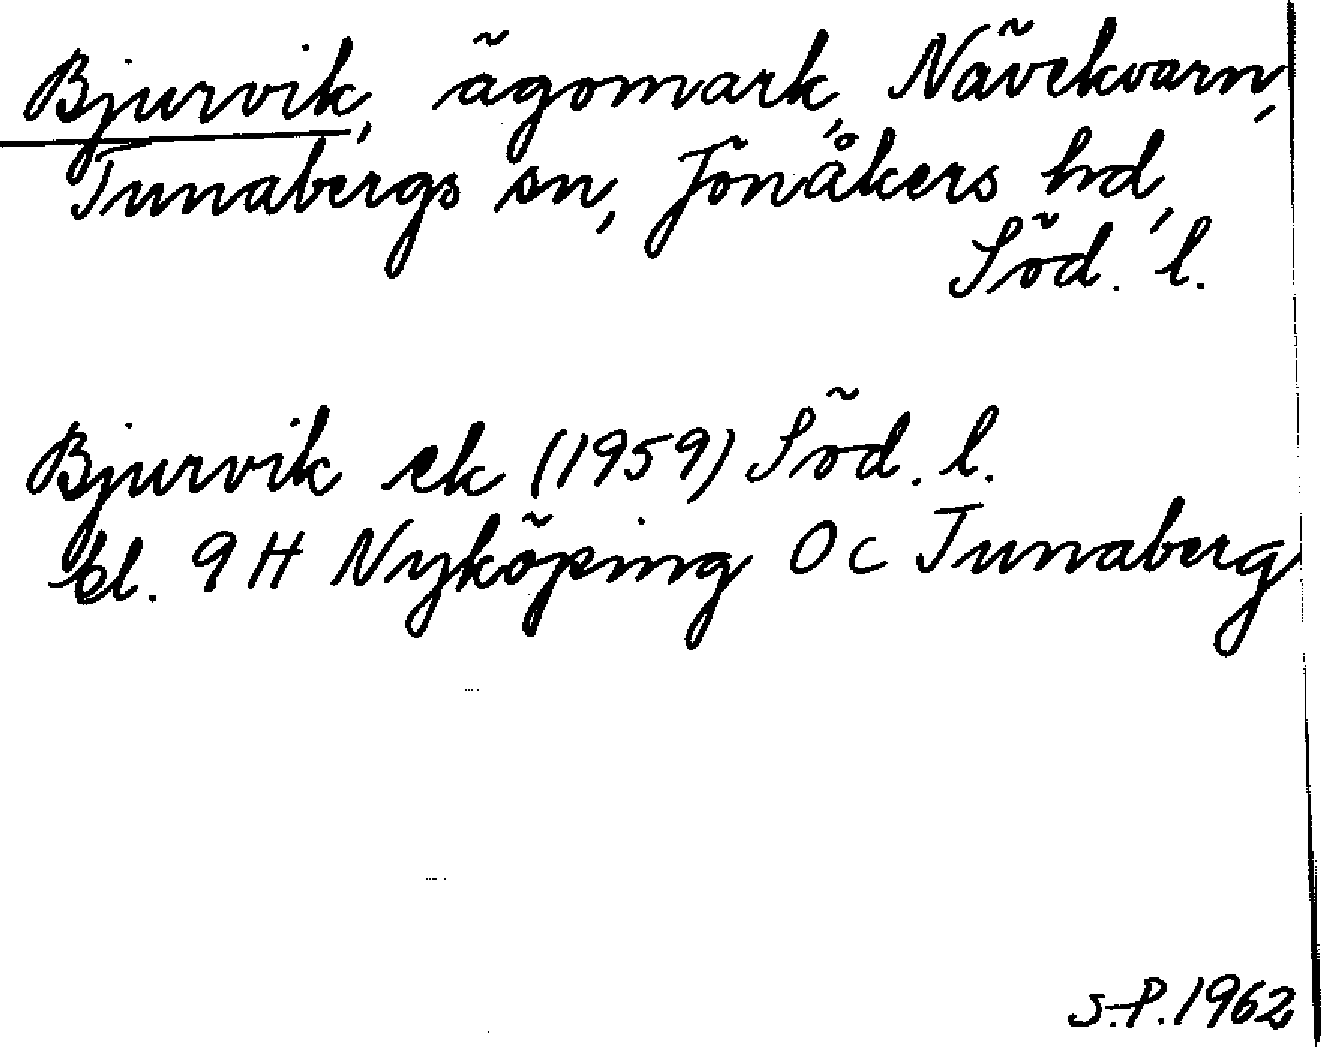 Bjurvik, ägomark, Nävekvarn,
Tunabergs sn, Jönåkers hd,
Söd. l.
Bjurvik ek (1959) Söd. l.
bl. 9H Nyköping Oc Tunaberg
S.P. 1962